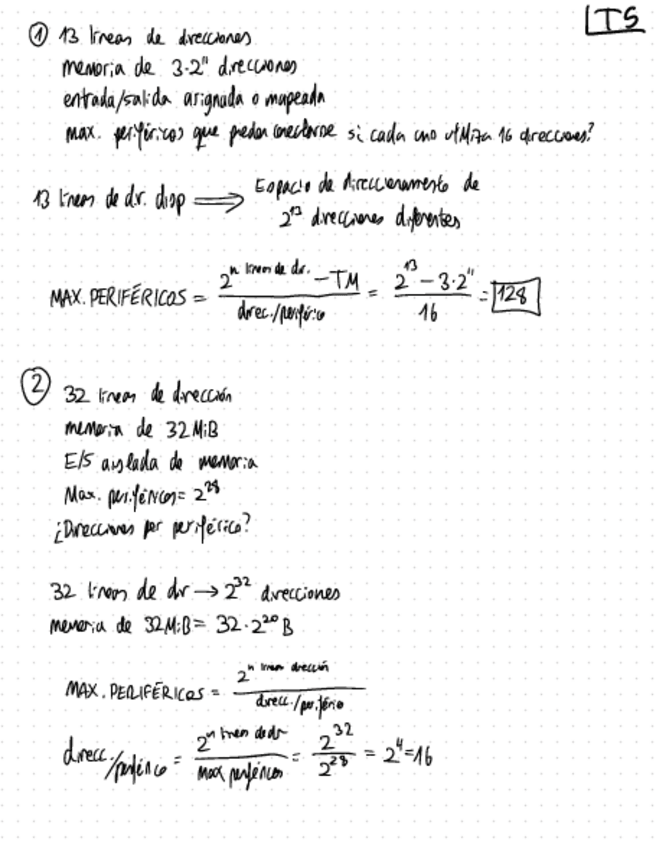 LTS
① 13 líneas de direcciones
memoria de 3·2¹¹ direcciones
entrada/salida asignada o mapeada
max. periféricos que pueden conectarse si cada uno utiliza 16 direcciones?
13 líneas de dir. disp ⟹ Espacio de direccionamiento de
2¹³ direcciones diferentes
MAX. PERIFÉRICOS = (2^(n líneas de dir.) − TM) / (direc./periférico) = (2¹³ − 3·2¹¹) / 16 = 128
② 32 líneas de dirección
memoria de 32 MiB
E/S aislada de memoria
Max. periféricos = 2²⁸
¿Direcciones por periférico?
32 líneas de dir → 2³² direcciones
memoria de 32MiB = 32·2²⁰ B
MAX. PERIFÉRICOS = 2^(n líneas dirección) / (direcc./periférico)
direcc./periférico = 2^(n líneas de dir) / (max periféricos) = 2³² / 2²⁸ = 2⁴ = 16